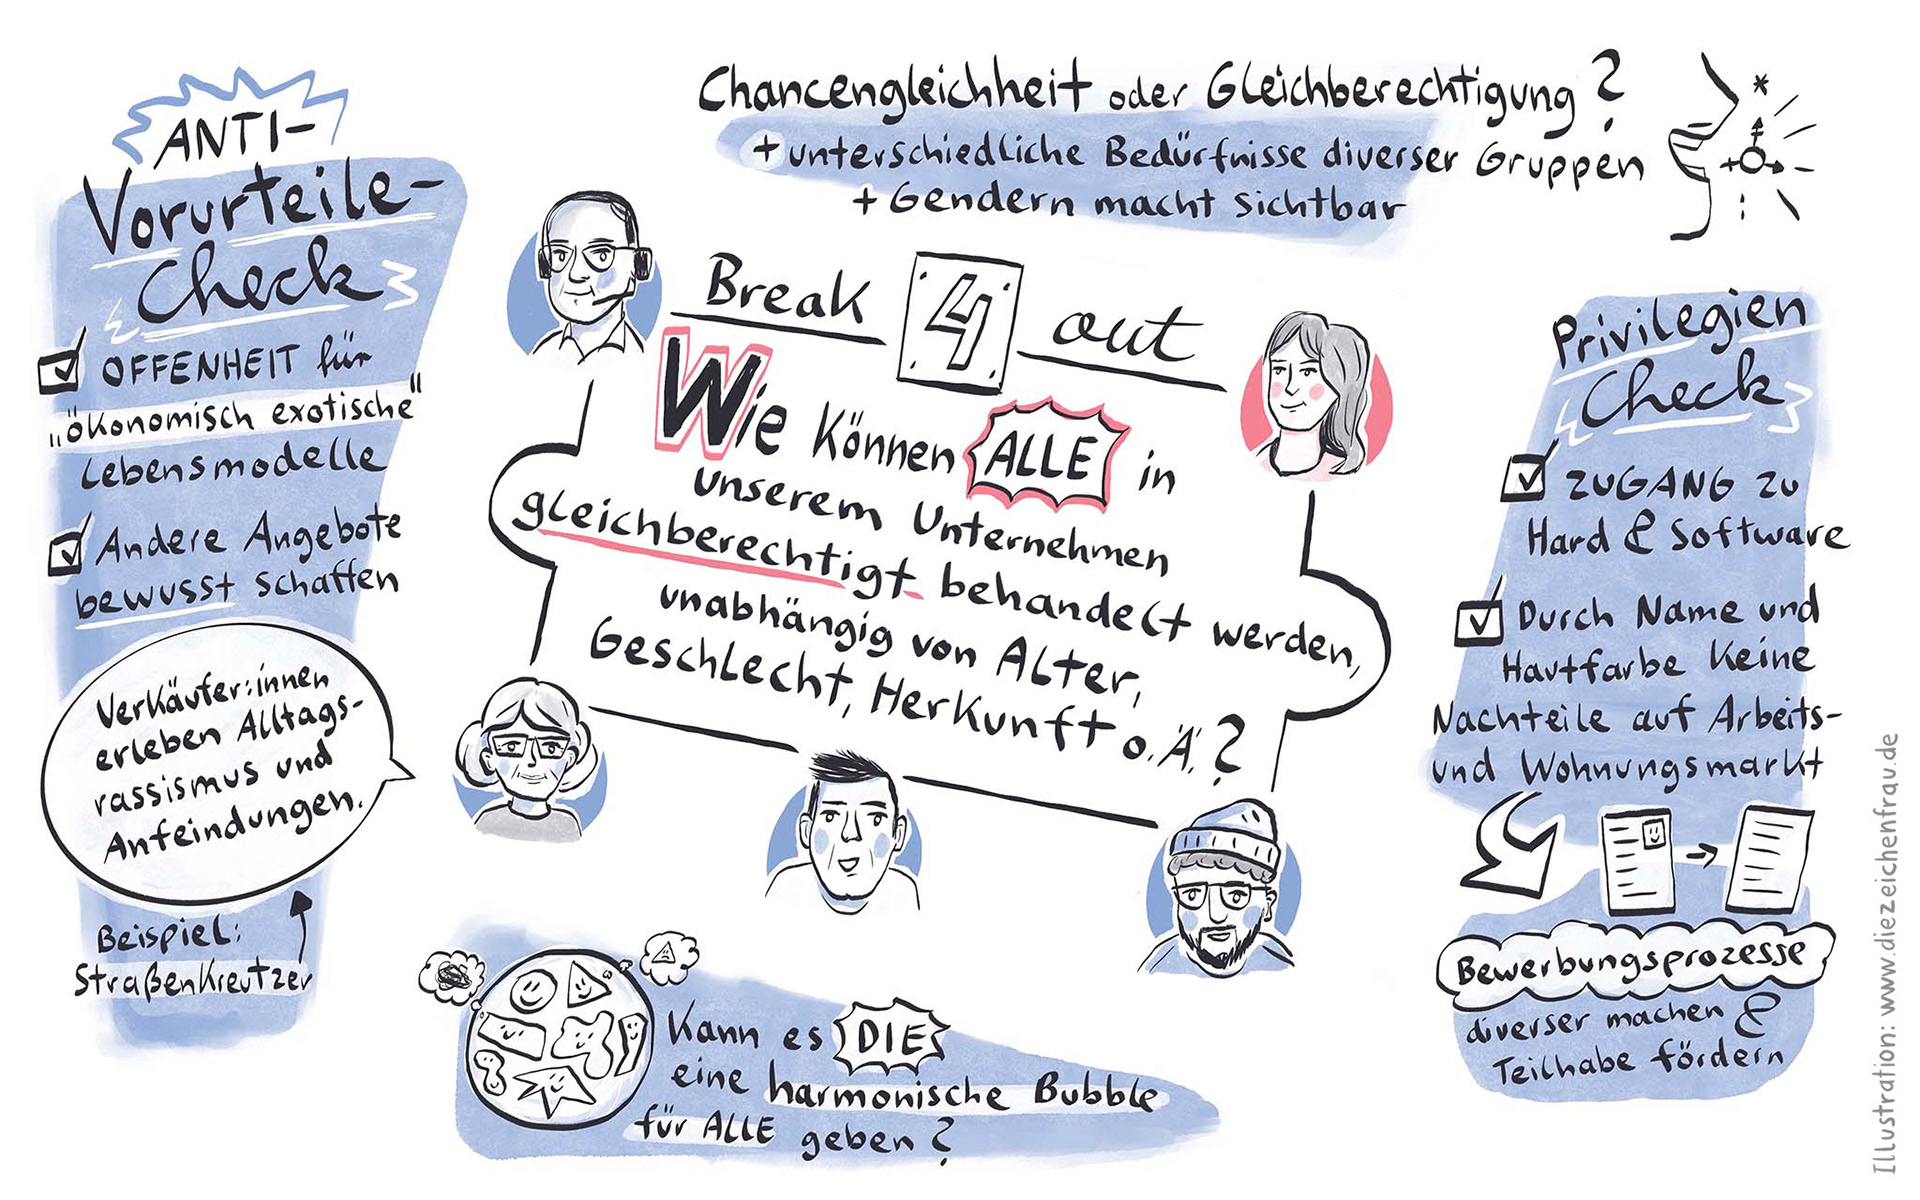 Chancengleichheit oder Gleichberechtigung?
+ unterschiedliche Bedürfnisse diverser Gruppen
+ Gendern macht sichtbar
*
ANTI-
Vorurteile-
Check
OFFENHEIT für
„ökonomisch exotische"
Lebensmodelle
Andere Angebote
bewusst schaffen
Verkäufer:innen
erleben Alltags-
rassismus und
Anfeindungen.
Beispiel:
Straßenkreutzer
Break 4 out
Wie können ALLE in
unserem Unternehmen
gleichberechtigt behandelt werden,
unabhängig von Alter,
Geschlecht, Herkunft o.Ä.?
Kann es DIE
eine harmonische Bubble
für ALLE geben?
Privilegien
Check
ZUGANG zu
Hard & Software
Durch Name und
Hautfarbe keine
Nachteile auf Arbeits-
und Wohnungsmarkt
Bewerbungsprozesse
diverser machen &
Teilhabe fördern
Illustration: www.diezeichenfrau.de